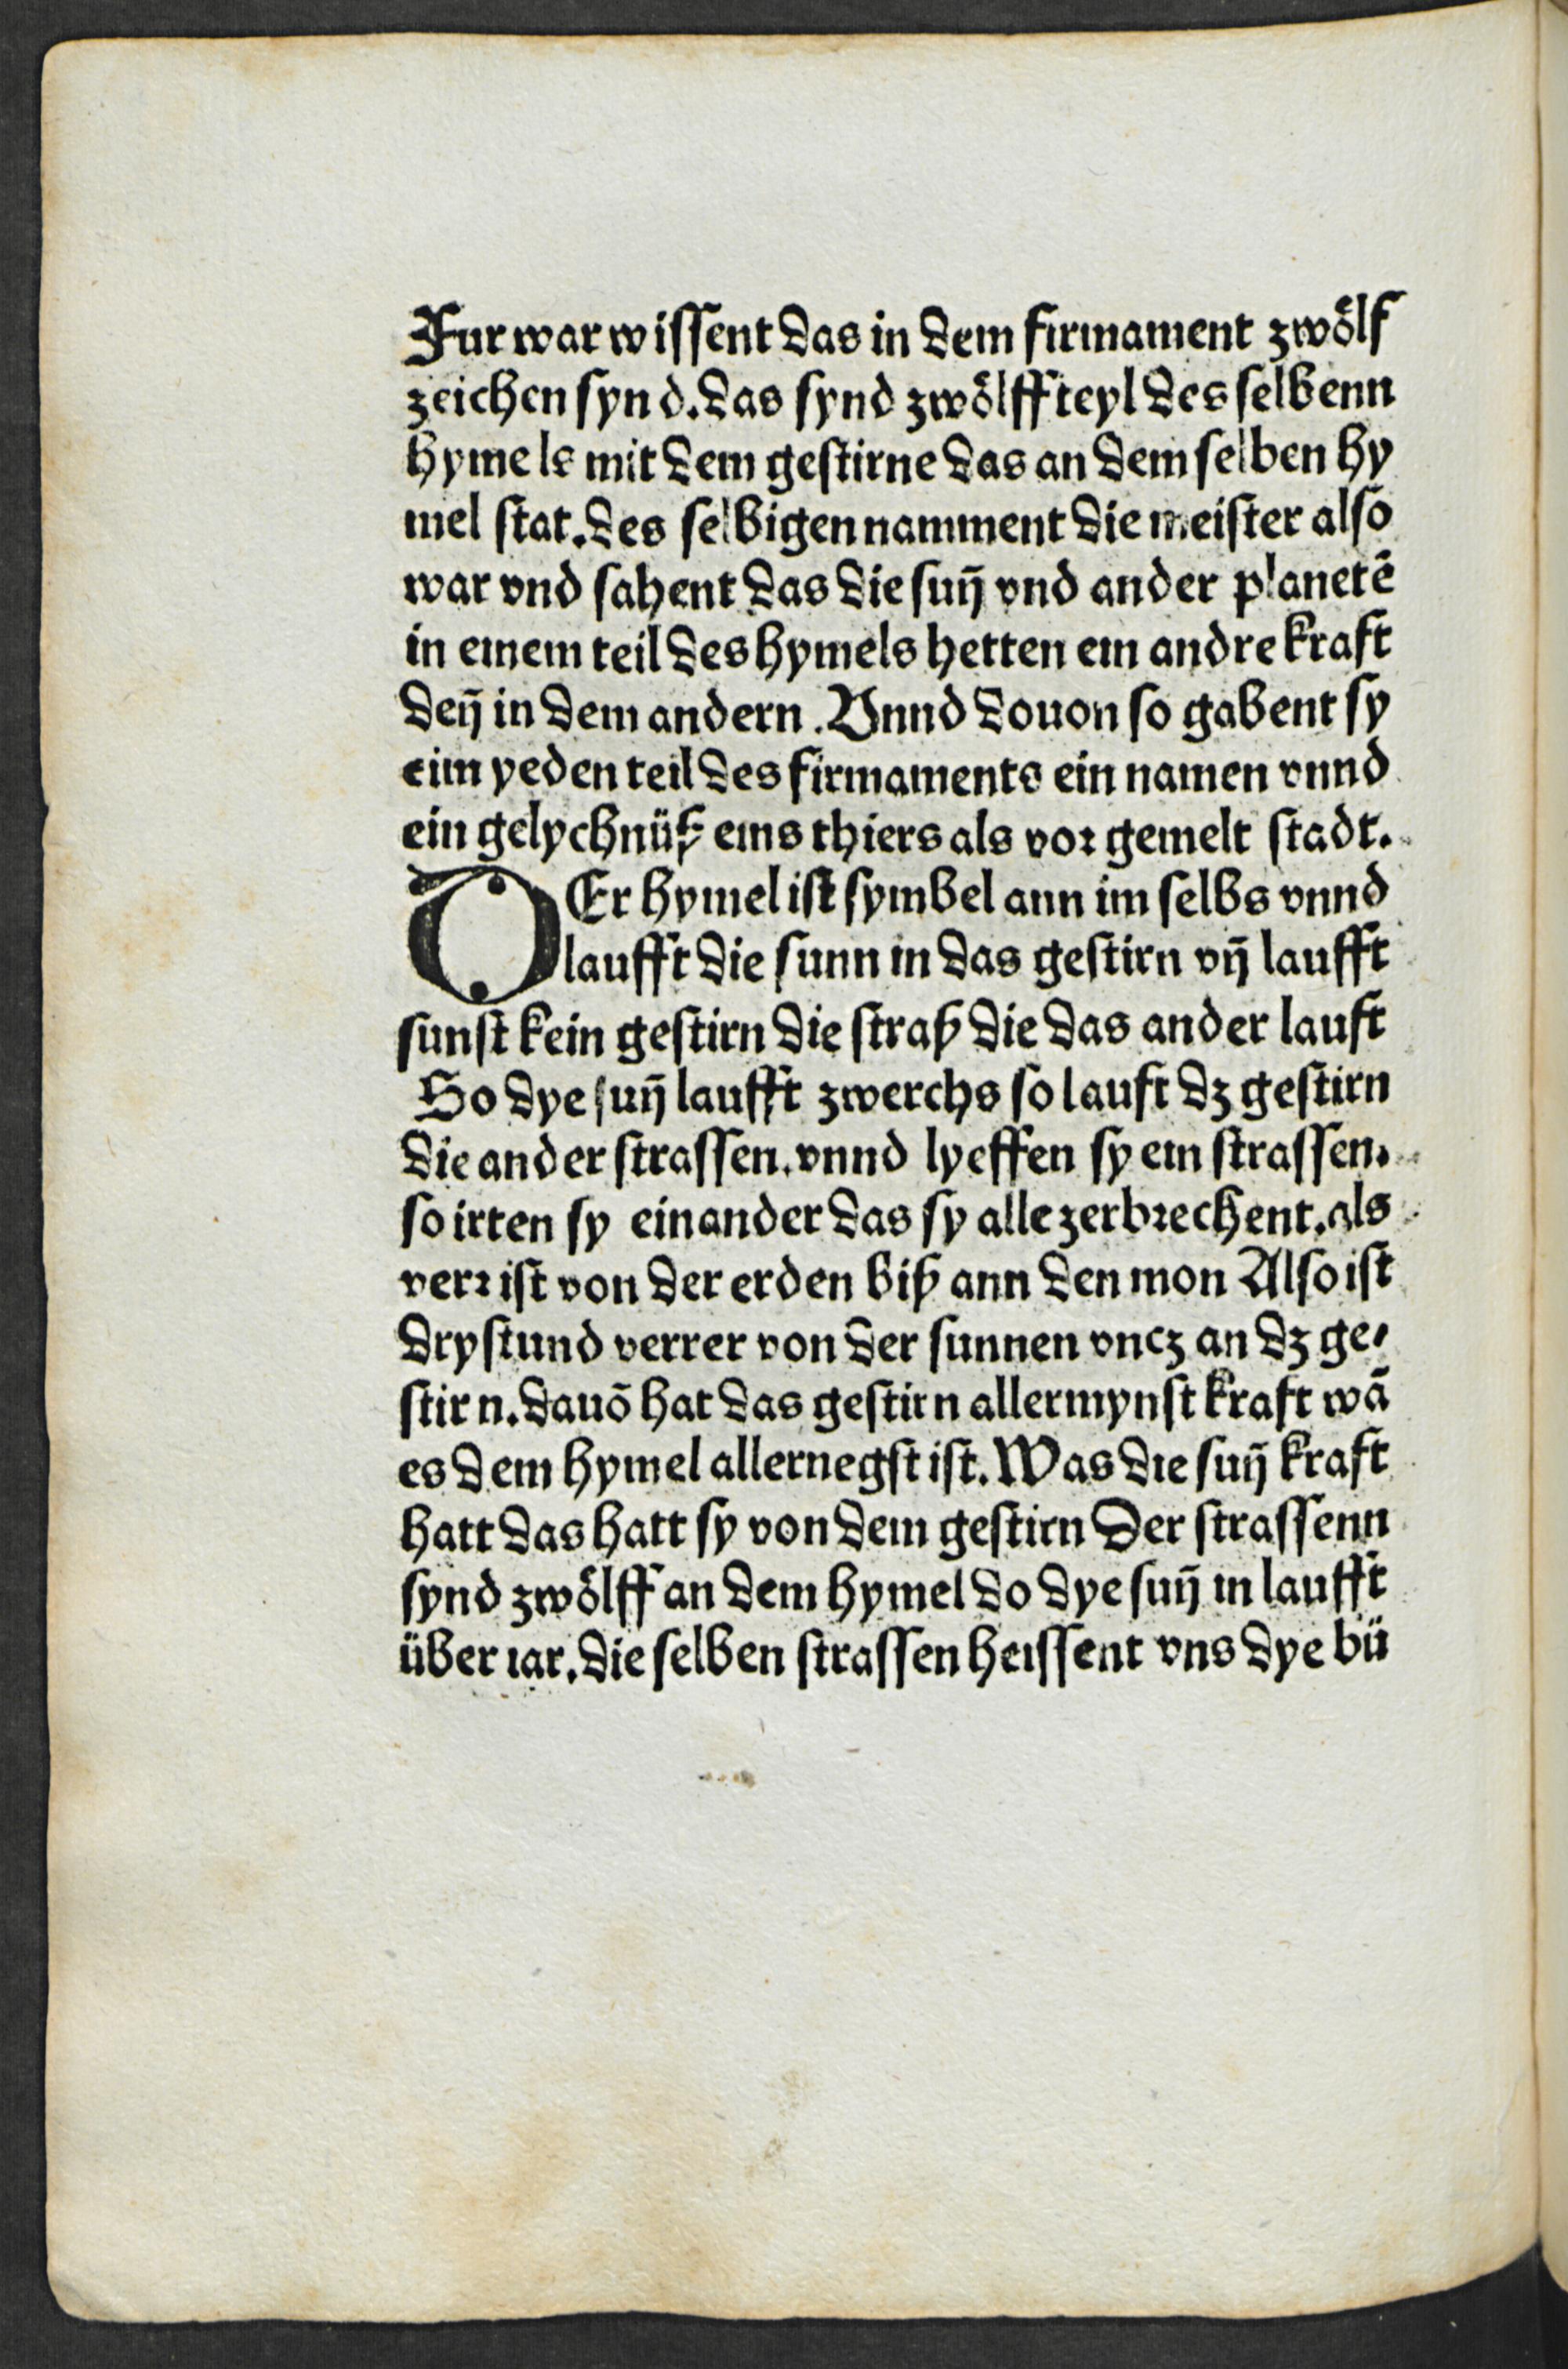 Fur war wissent das in dem firmament zwölf
zeichen synd. das synd zwölff teyl des selbenn
hymels mit dem gestirne das an dem selben hy
mel stat. des selbigen namment die meister also
war vnd sahent das die sun̄ vnd ander planetē
in einem teil des hymels hetten ein andre kraft
den̄ in dem andern. Vnnd douon so gabent sy
eim yeden teil des firmaments ein namen vnnd
ein gelychnüß eins thiers als vor gemelt stadt.
DEr hymel ist symbel ann im selbs vnnd
laufft die sunn in das gestirn vn̄ laufft
sunst kein gestirn die straß die das ander lauft
So dye sun̄ laufft zwerchs so lauft dz gestirn
die ander strassen. vnnd lyeffen sy ein strassen.
so irten sy einander das sy alle zerbrechent. als
verr ist von der erden biß ann den mon Also ist
dry stund verrer von der sunnen vncz an dz ge⸗
stirn. dauō hat das gestirn allermynst kraft wā
es dem hymel allernegst ist. Was die sun̄ kraft
hatt das hatt sy von dem gestirn Der strassenn
synd zwölff an dem hymel do dye sun̄ in laufft
über iar. die selben strassen heissent vns dye bü